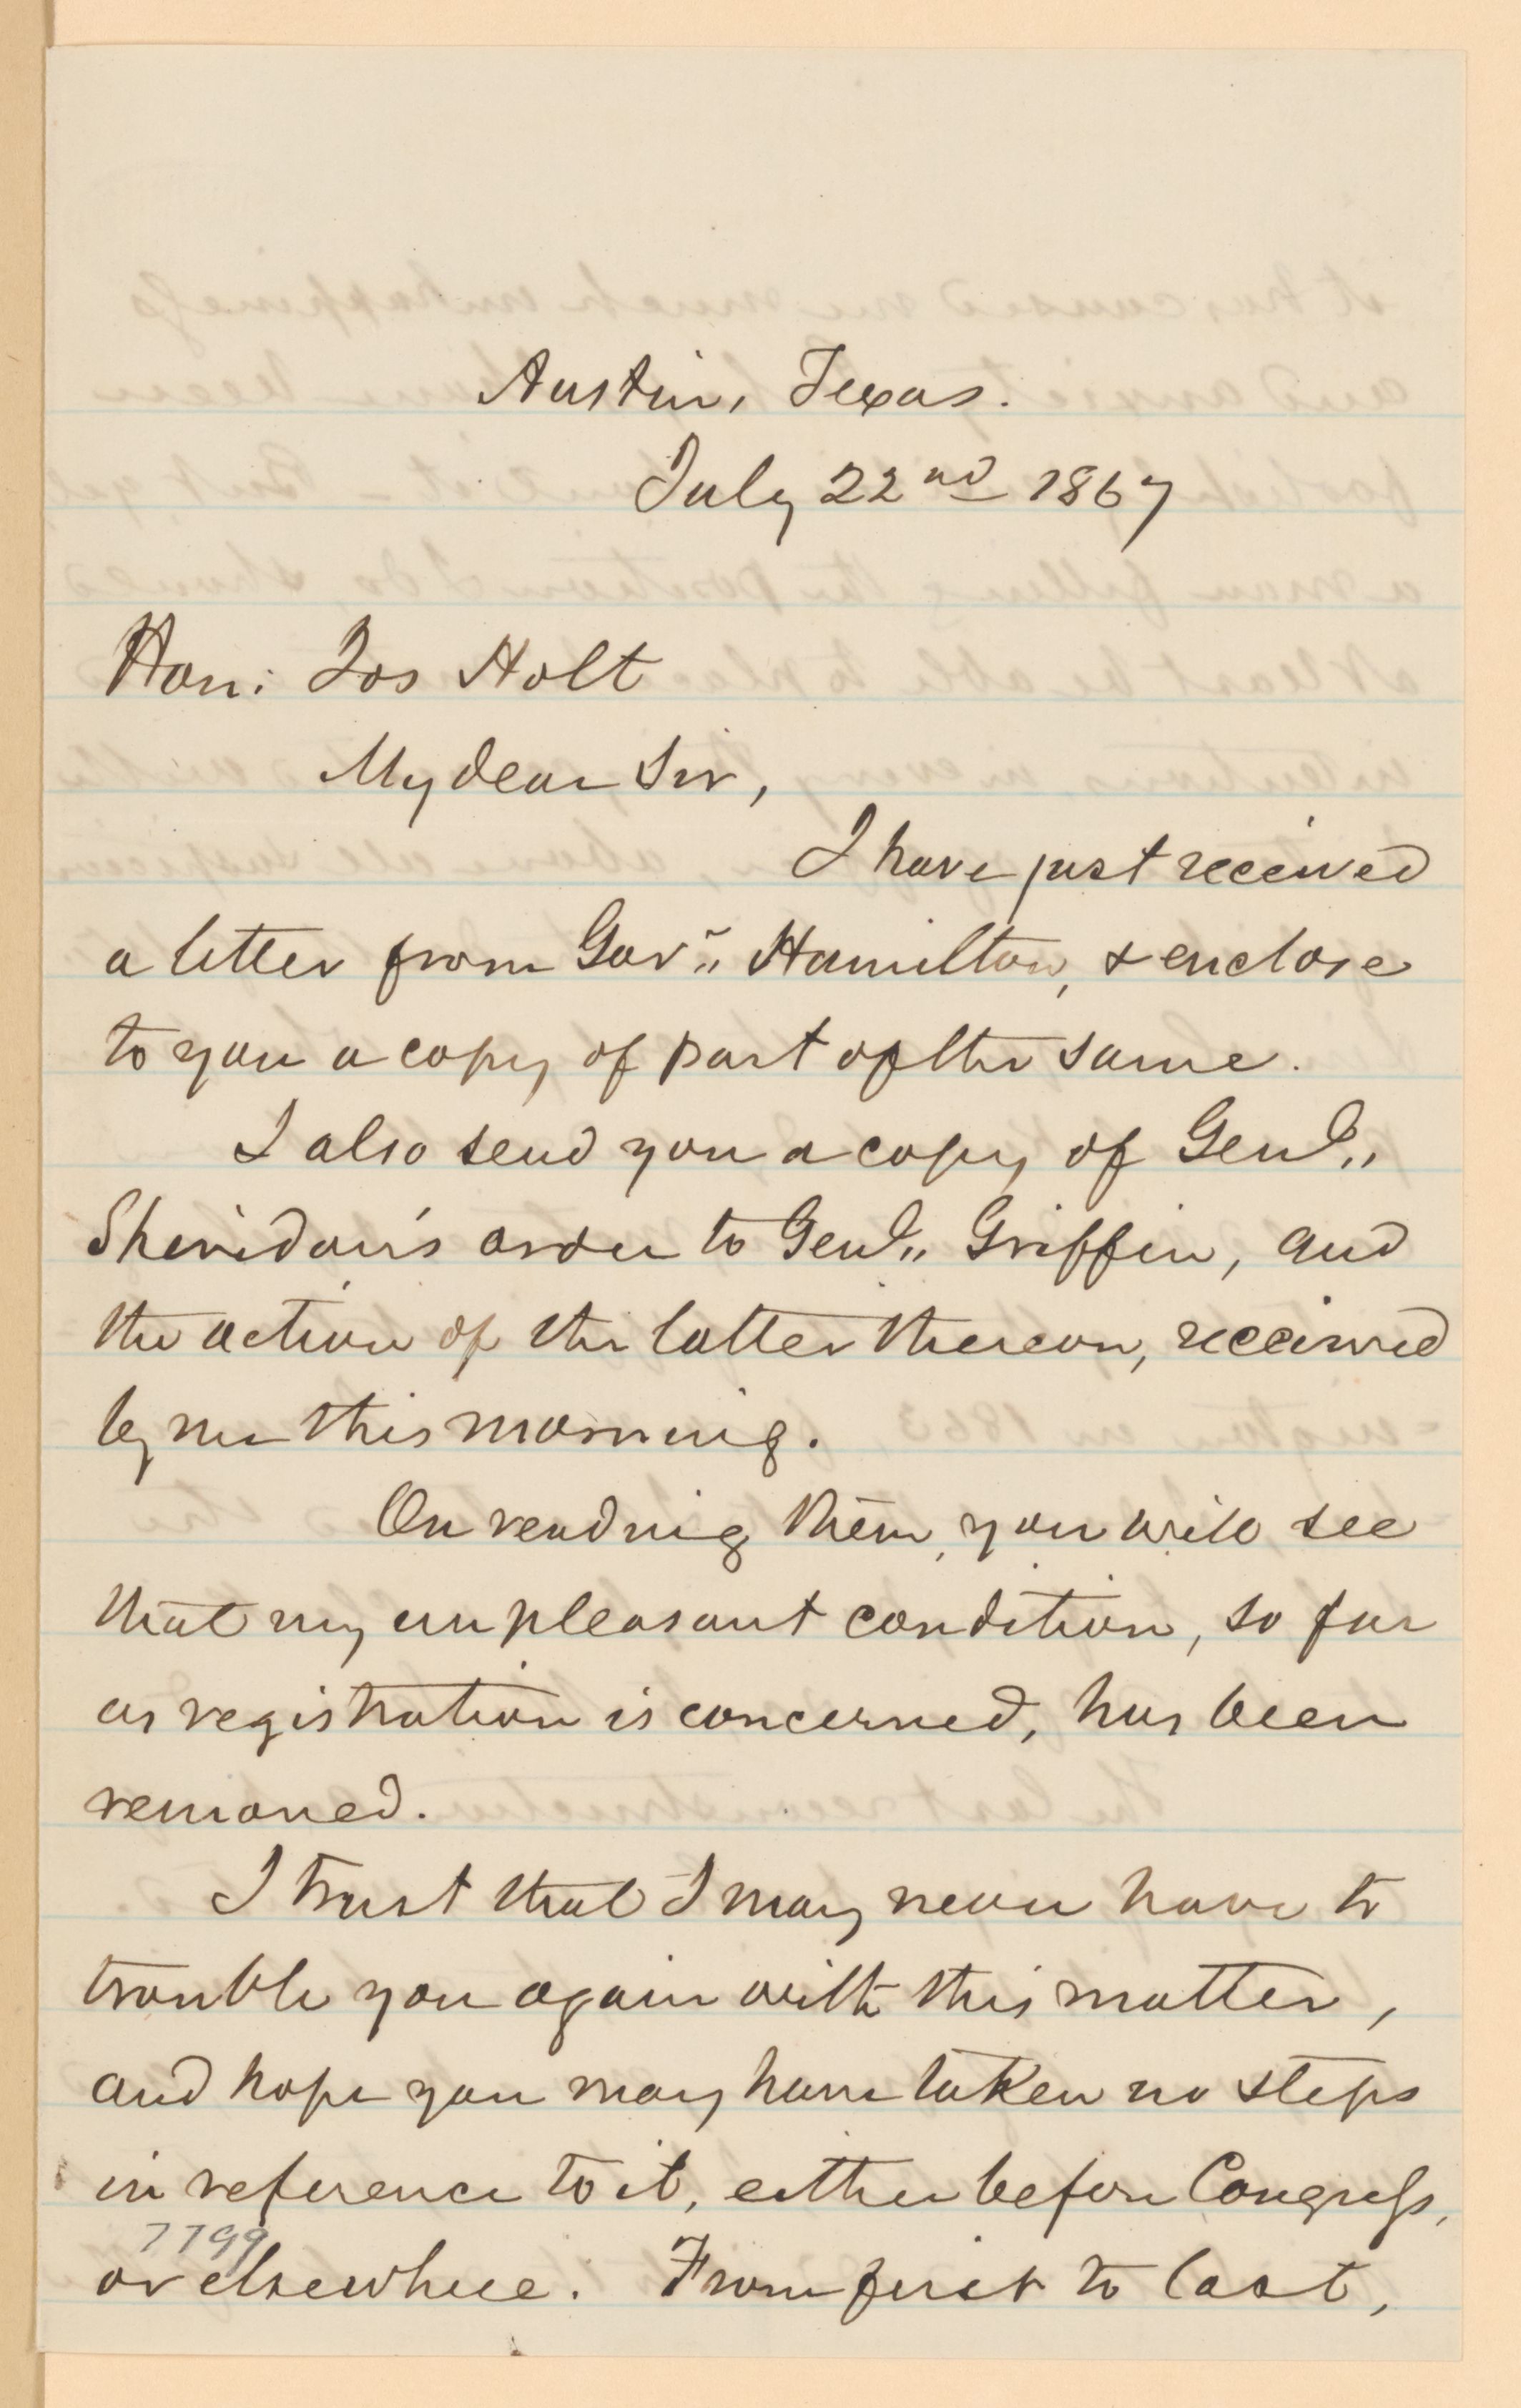 Austin, Texas.
July 22nd 1867
Hon: Jos Holt
My dear Sir,
I have just received
a letter from Govr,, Hamilton, & enclose
to you a copy of part of the same.
I also send you a copy of Genl,,
Sheridan's order to Genl,, Griffin, and
the action of the latter thereon, received
by me this morning.
On reading them, you will see
that my unpleasant condition, so far
as registration is concerned, has been
removed.
I trust that I may never have to
trouble you again with this matter,
and hope you may have taken no steps
in reference to it, either before Congress,
7799
or elsewhere. From first to last,